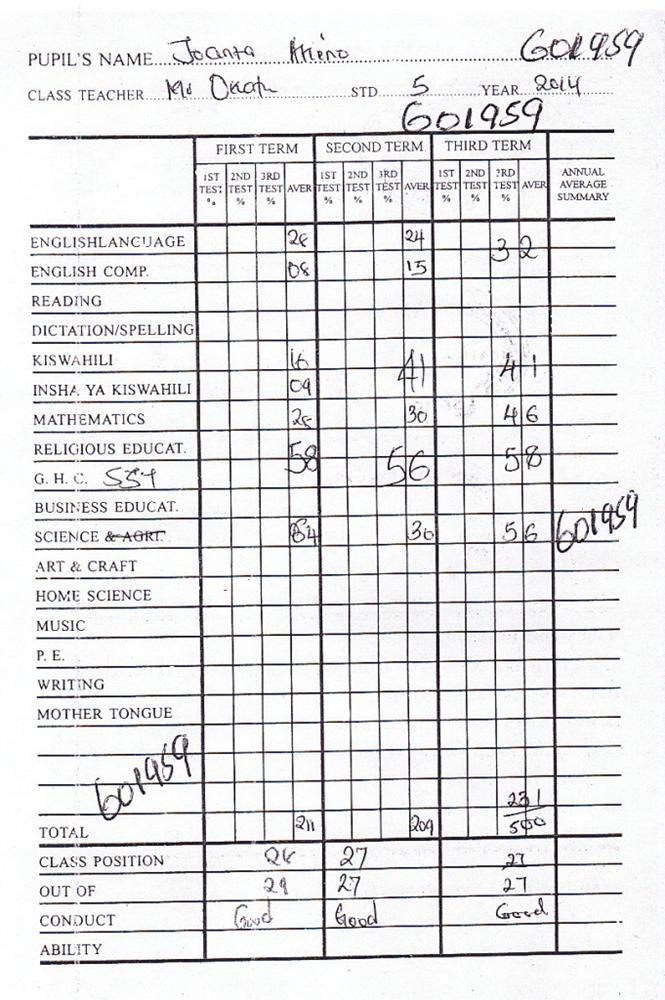 PUPIL'S NAME Joanta Atieno 601959
CLASS TEACHER STD 5 YEAR 2014
601959
FIRST TERM SECOND TERM THIRD TERM
1ST TEST % 2ND TEST % 3RD TEST % AVER 1ST TEST % 2ND TEST % 3RD TEST % AVER 1ST TEST % 2ND TEST % 3RD TEST % AVER ANNUAL AVERAGE SUMMARY
ENGLISH LANGUAGE 24 32
ENGLISH COMP. 08 15
READING
DICTATION/SPELLING
KISWAHILI 16 41 41
INSHA YA KISWAHILI 09
MATHEMATICS 30 46
RELIGIOUS EDUCAT. 58 56 58
G. H. C.
BUSINESS EDUCAT.
SCIENCE & AGRI. 64 36 56 601959
ART & CRAFT
HOME SCIENCE
MUSIC
P. E.
WRITING
MOTHER TONGUE
601959
231
TOTAL 211 209 500
CLASS POSITION 27 27
OUT OF 29 27 27
CONDUCT Good Good Good
ABILITY